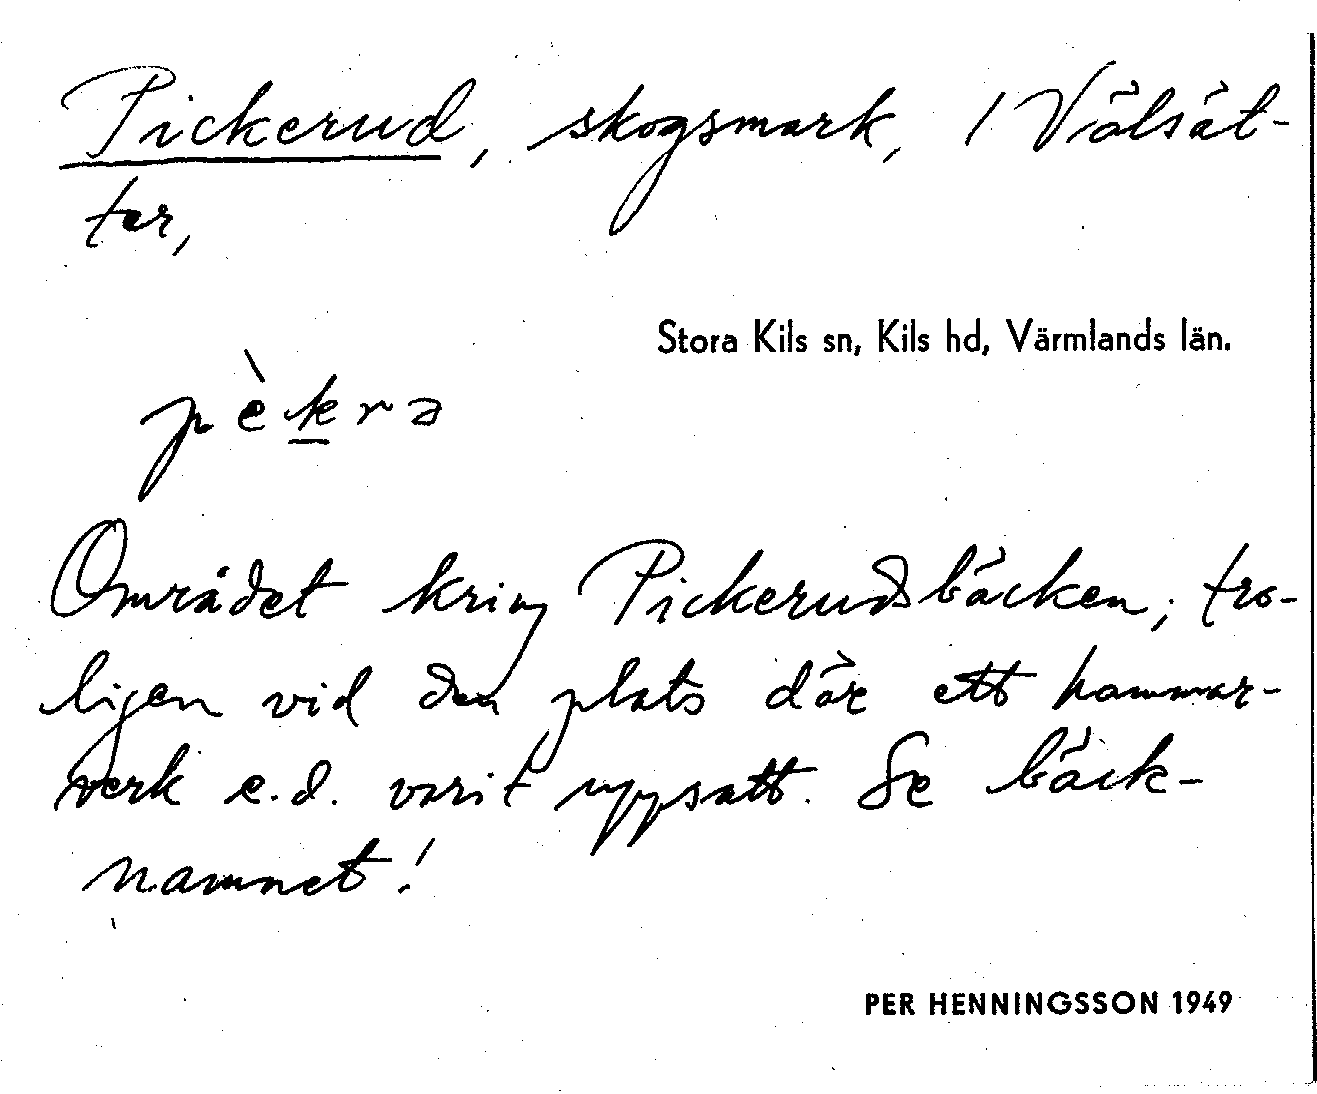 Pickerud, skogsmark, / Välsät-
ter,
Stora Kils sn, Kils hd, Värmlands län.
pèkrə
Området kring Pickerudsbäcken, tro-
ligen vid den plats där ett hammar-
verk e.d. varit uppsatt. Se bäck-
namnet!
PER HENNINGSSON 1949